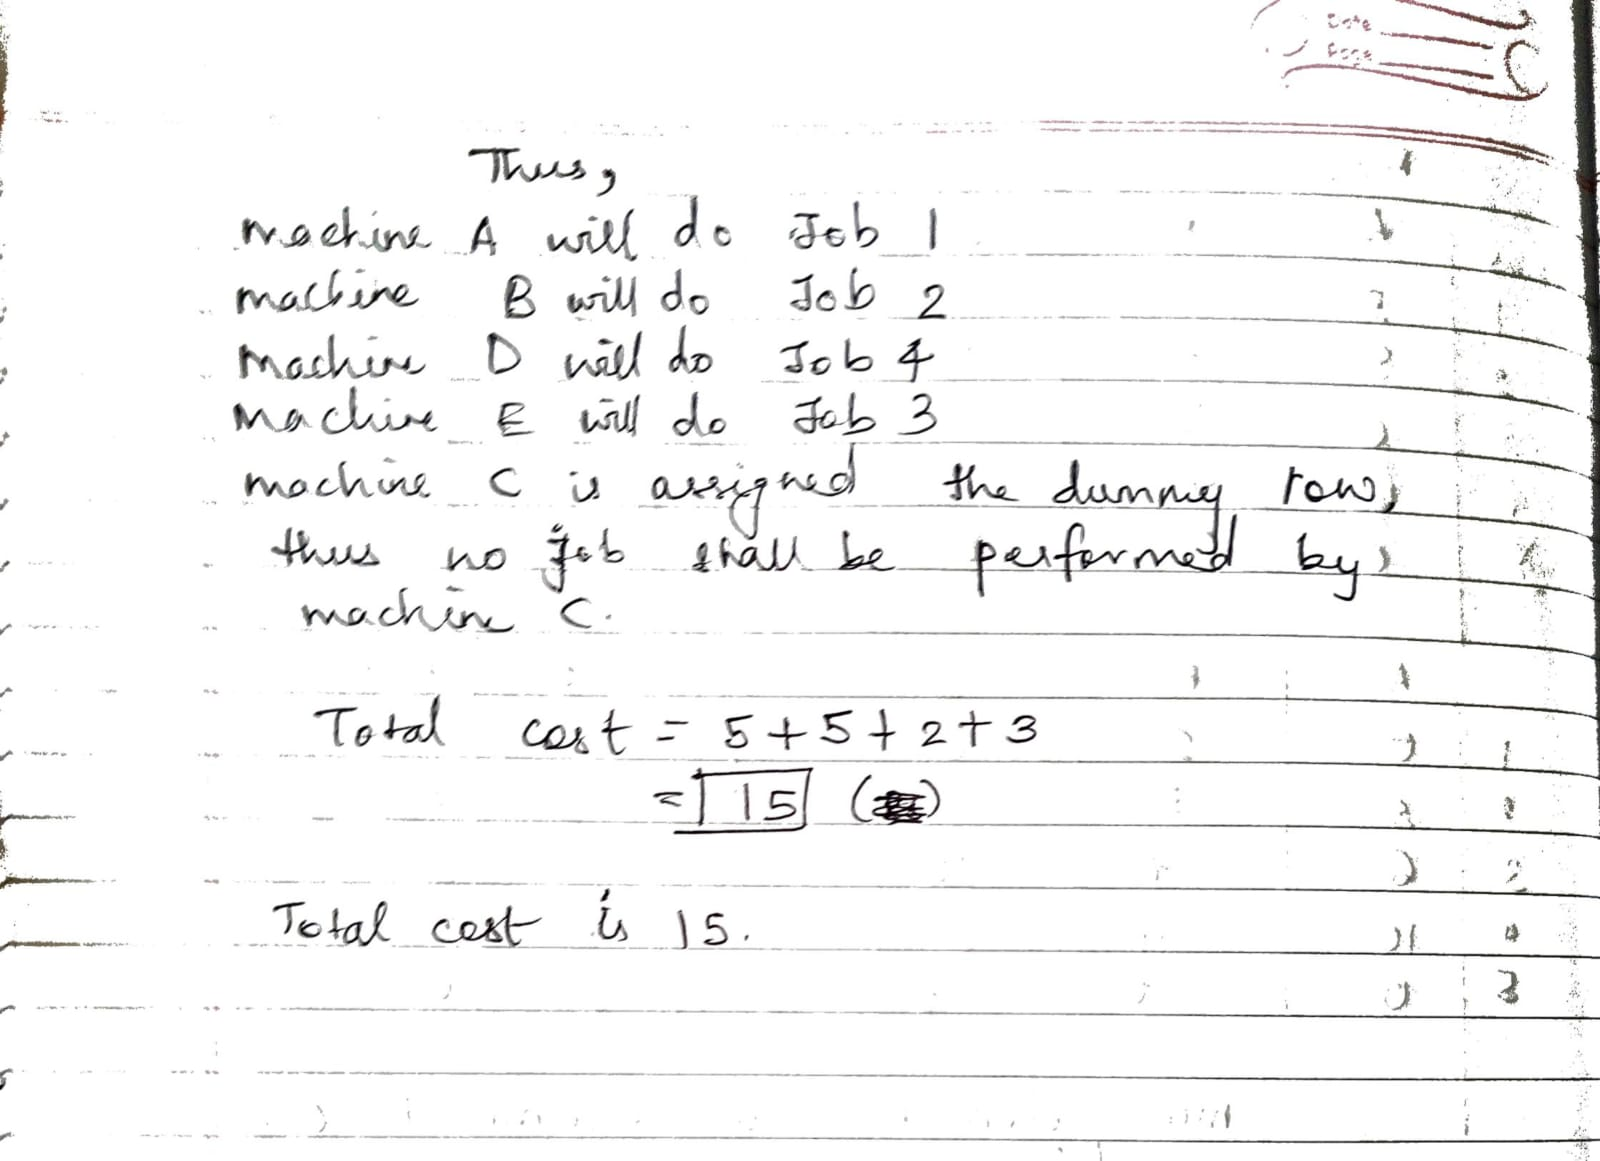 Date
Page
Thus,
Machine A will do Job 1
machine B will do Job 2
Machine D will do Job 4
Machine E will do Job 3
machine C is assigned the dummy row,
thus no job shall be performed by
machine C.
Total cost = 5 + 5 + 2 + 3
= 15 ( )
Total cost is 15.